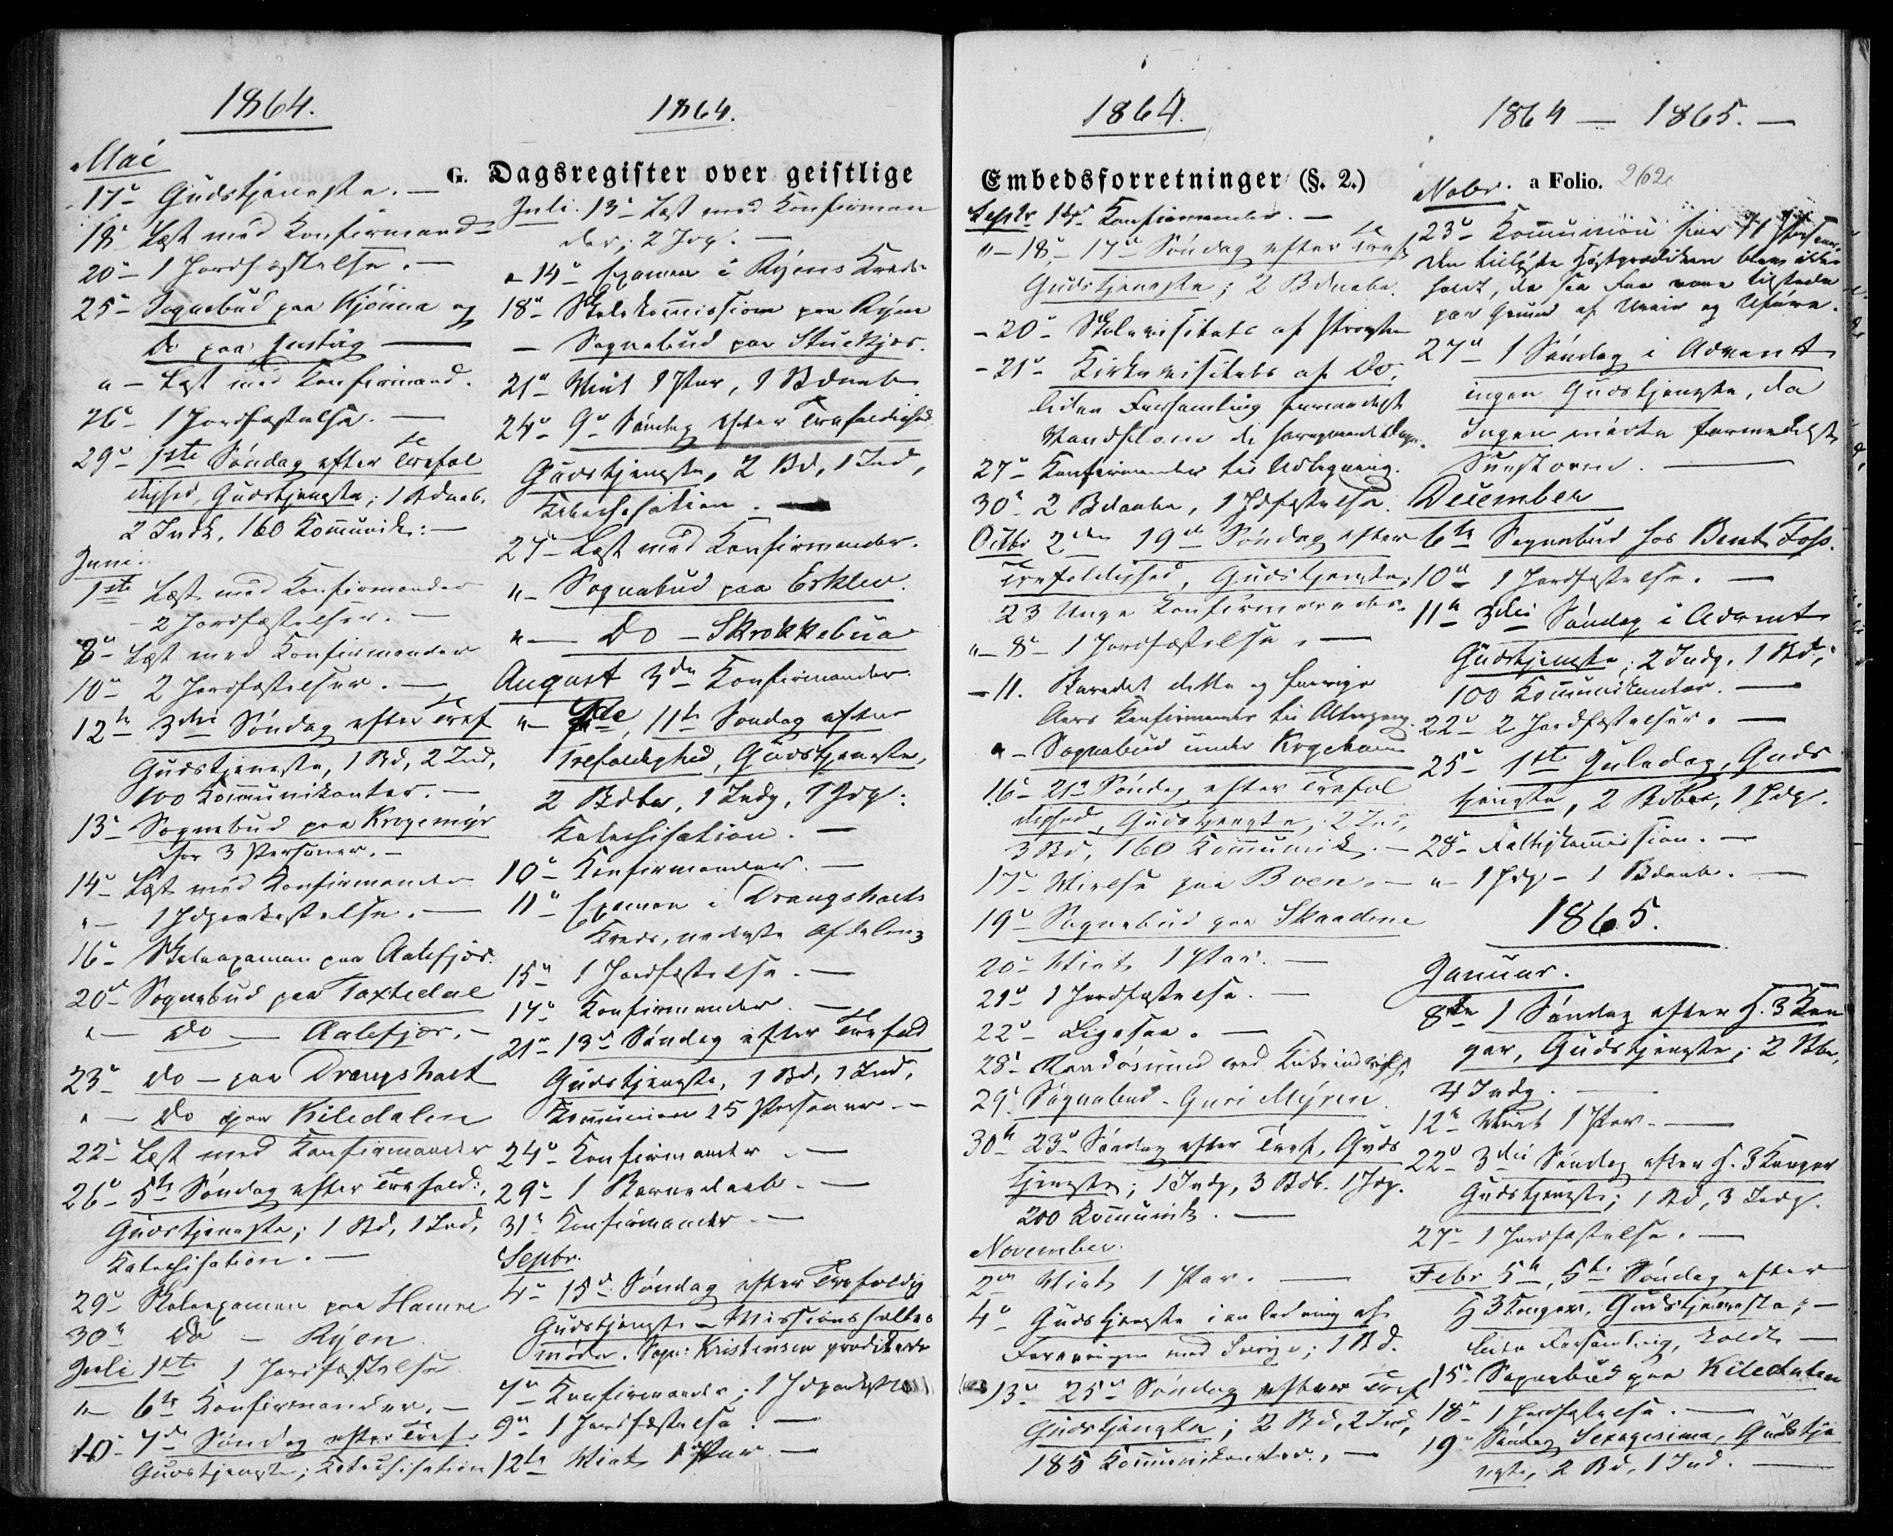 1864.
G. Dagsregister over geistlige
Mai
17de Gudstjeneste. —
18de Læst med Konfirmand-
20de 1 Jordfæstelse. —
25de Sognebud paa Kjönna og
Do paa
" – Læst med Konfirmand.
26de 1 Jordfæstelse. —
29de 1ste Söndag efter Trefol
dighed, Gudstjeneste; 1 Bdaab.
2 Indl, 160 Komunik: —
Juni.
1ste Læst med Konfirmander
– 2 Jordfæstelser. —
8de Læst med Konfirmander
10de 2 Jordfæstelser. —
12te 3die Söndag efter Tref
Gudstjeneste, 1 Bd, 2 Ind,
100 Kommunikanter. —
13de Sognebud paa Krogemyr
for 3 Personer. –
14de Læst med Konfirmander
" – 1 Jdpaakastelse. —
16de Skoleexamen paa Aalefjær.
20de Sognebud paa Taxtedal
" – Do — Aalefjær. –
23de Do – paa Drangsholt
" – Do paa Kiledalen
22de Læst med Konfirmander
26de 5te Söndag efter Trefold:,
Gudstjeneste; 1 Bd, 1 Ind,
Katechisation. —
29de Skoleexamen paa Hamre
30te Do – Ryen
Juli 1ste 1 Jordfæstelse
" – 6te Konfirmander. –
10de 7de Söndag efter Tref
Gudstjeneste; Katechisation
1864.
Juli. 13de Læst med Konfirman
der; 2 Jdp. —
" 14de Examen i Ryens Kreds
18de Skolekommission paa Ryen
— Sognebud paa Stuekjær.
21de Viet 1 Par, 1 Bdaab
24de 9de Söndag efter Trefoldighed
Gudstjeneste, 2 Bd, 1 Ind,
Katechisation. —
27de Læst med Konfirmander.
" – Sognebud paa Erklev.
" – Do – Skrokkebua
August 3die Konfirmander.
" – 7de, 11te Söndag efter
Trefoldighed, Gudstjeneste,
2 Bdber, 1 Indg, 1 Jdp.
Katechisation. —
10de Konfirmander. —
11te Examen i Drangsholts
Kreds, nederste Afdeling
15de 1 Jordfæstelse. —
17de Konfirmander. —
21de 13de Söndag efter Trefold
Gudstjeneste, 1 Bd, 1 Ind,
Kommunion 25 Personer –
24de Konfirmander. —
29de 1 Barnedaab. —
31te Konfirmander. —
Sepbr.
4de 15de Söndag efter Trefoldig
Gudstjeneste – Missionsfælles
möde. Sogn: Kristensen prædikede
7de Konfirmander; 1 Jdpaakast
9de 1 Jordfæstelse. —
12te Viet 1 Par —
1864.
Embedsforretninger (§. 2.)
Septr 14de Konfirmander. —
" – 18de 17de Söndag efter Tref
Gudstjeneste; 2 Bdaabe.
– 20de Skolevisitats af Provsten
– 21de Kirkevisitats af Do,
liden Forsamling formedelst
Vandflom de foregaaende Dage.
27de Konfirmander til Udlægning.
30te 2 Bdaabe, 1 Jdfæstelse.
Octbr 2den 19de Söndag efter
Trefoldighed, Gudstjeneste;
23 Unge Konfirmeredes.
" – 8de 1 Jordfæstelse. —
– 11. Beredet dette og forrige
Aars Konfirmander til Altergang.
" – Sognebud under
16de 21de Söndag efter Trefol
dighed, Gudstjeneste; 2 Ind,
3 Bd, 160 Kommunik. –
17de Vielse paa Boen. –
19de Sognebud paa Skaadene
20de Viet 1 Par. —
21de 1 Jordfæstelse. —
22de Ligesaa. —
28de Randösund ved Kirkeindvielse
29de Sognebud – Guri Myren
30te 23de Söndag efter Tref, Guds
tjeneste; 1 Indg, 3 Bdb. 1 Jdp.
200 Kommunik. —
November.
2den Viet 1 Par. —
4de Gudstjeneste i anledning af
Foreningen med Sverige; 1 Bd.
13de 25de Söndag efter Tref
Gudstjeneste; 2 Bd, 2 Ind,
185 Kommunikanter. —
1864 — 1865. —
a Folio. 262
Nobr.
23de Kommunion for 71 Personer.
Den tilligste Höstprædiken blev ikke
holdt, da saa Faa vare tilstede
paa Grund af Uveir og Uföre.
27de 1 Söndag i Advent
ingen Gudstjeneste, da
Ingen mödte formedelst
Snestorm. —
December
6te Sognebud hos Bent Foss.
10de 1 Jordfæstelse. —
11te 3die Söndag i Advent
Gudstjeneste; 2 Indg, 1 Bd,
100 Kommunikanter. —
22de 2 Jordfæstelser. —
25de 1ste Juledag, Guds
tjeneste, 2 Bdber, 1 Jdp.
28de Fattigkommission. —
" – 1 Jdp – 1 Bdaab. —
1865.
Januar.
8de 1 Söndag efter H. 3 Kon
ger, Gudstjeneste; 2 Bbe,
4 Indg. —
12te Viet 1 Par. —
22de 3die Söndag efter H. 3 Konger
Gudstjeneste; 1 Bd, 3 Indg.
27de 1 Jordfæstelse. —
Febr 5te, 5te Söndag efter
H 3 Konger, Gudstjeneste; —
liden Forsamling, koldt —
15de Sognebud paa Kiledalen
18de 1 Jordfæstelse. —
19de Söndag Sexagesima, Gudstje
neste, 2 Bd, 1 Ind. —